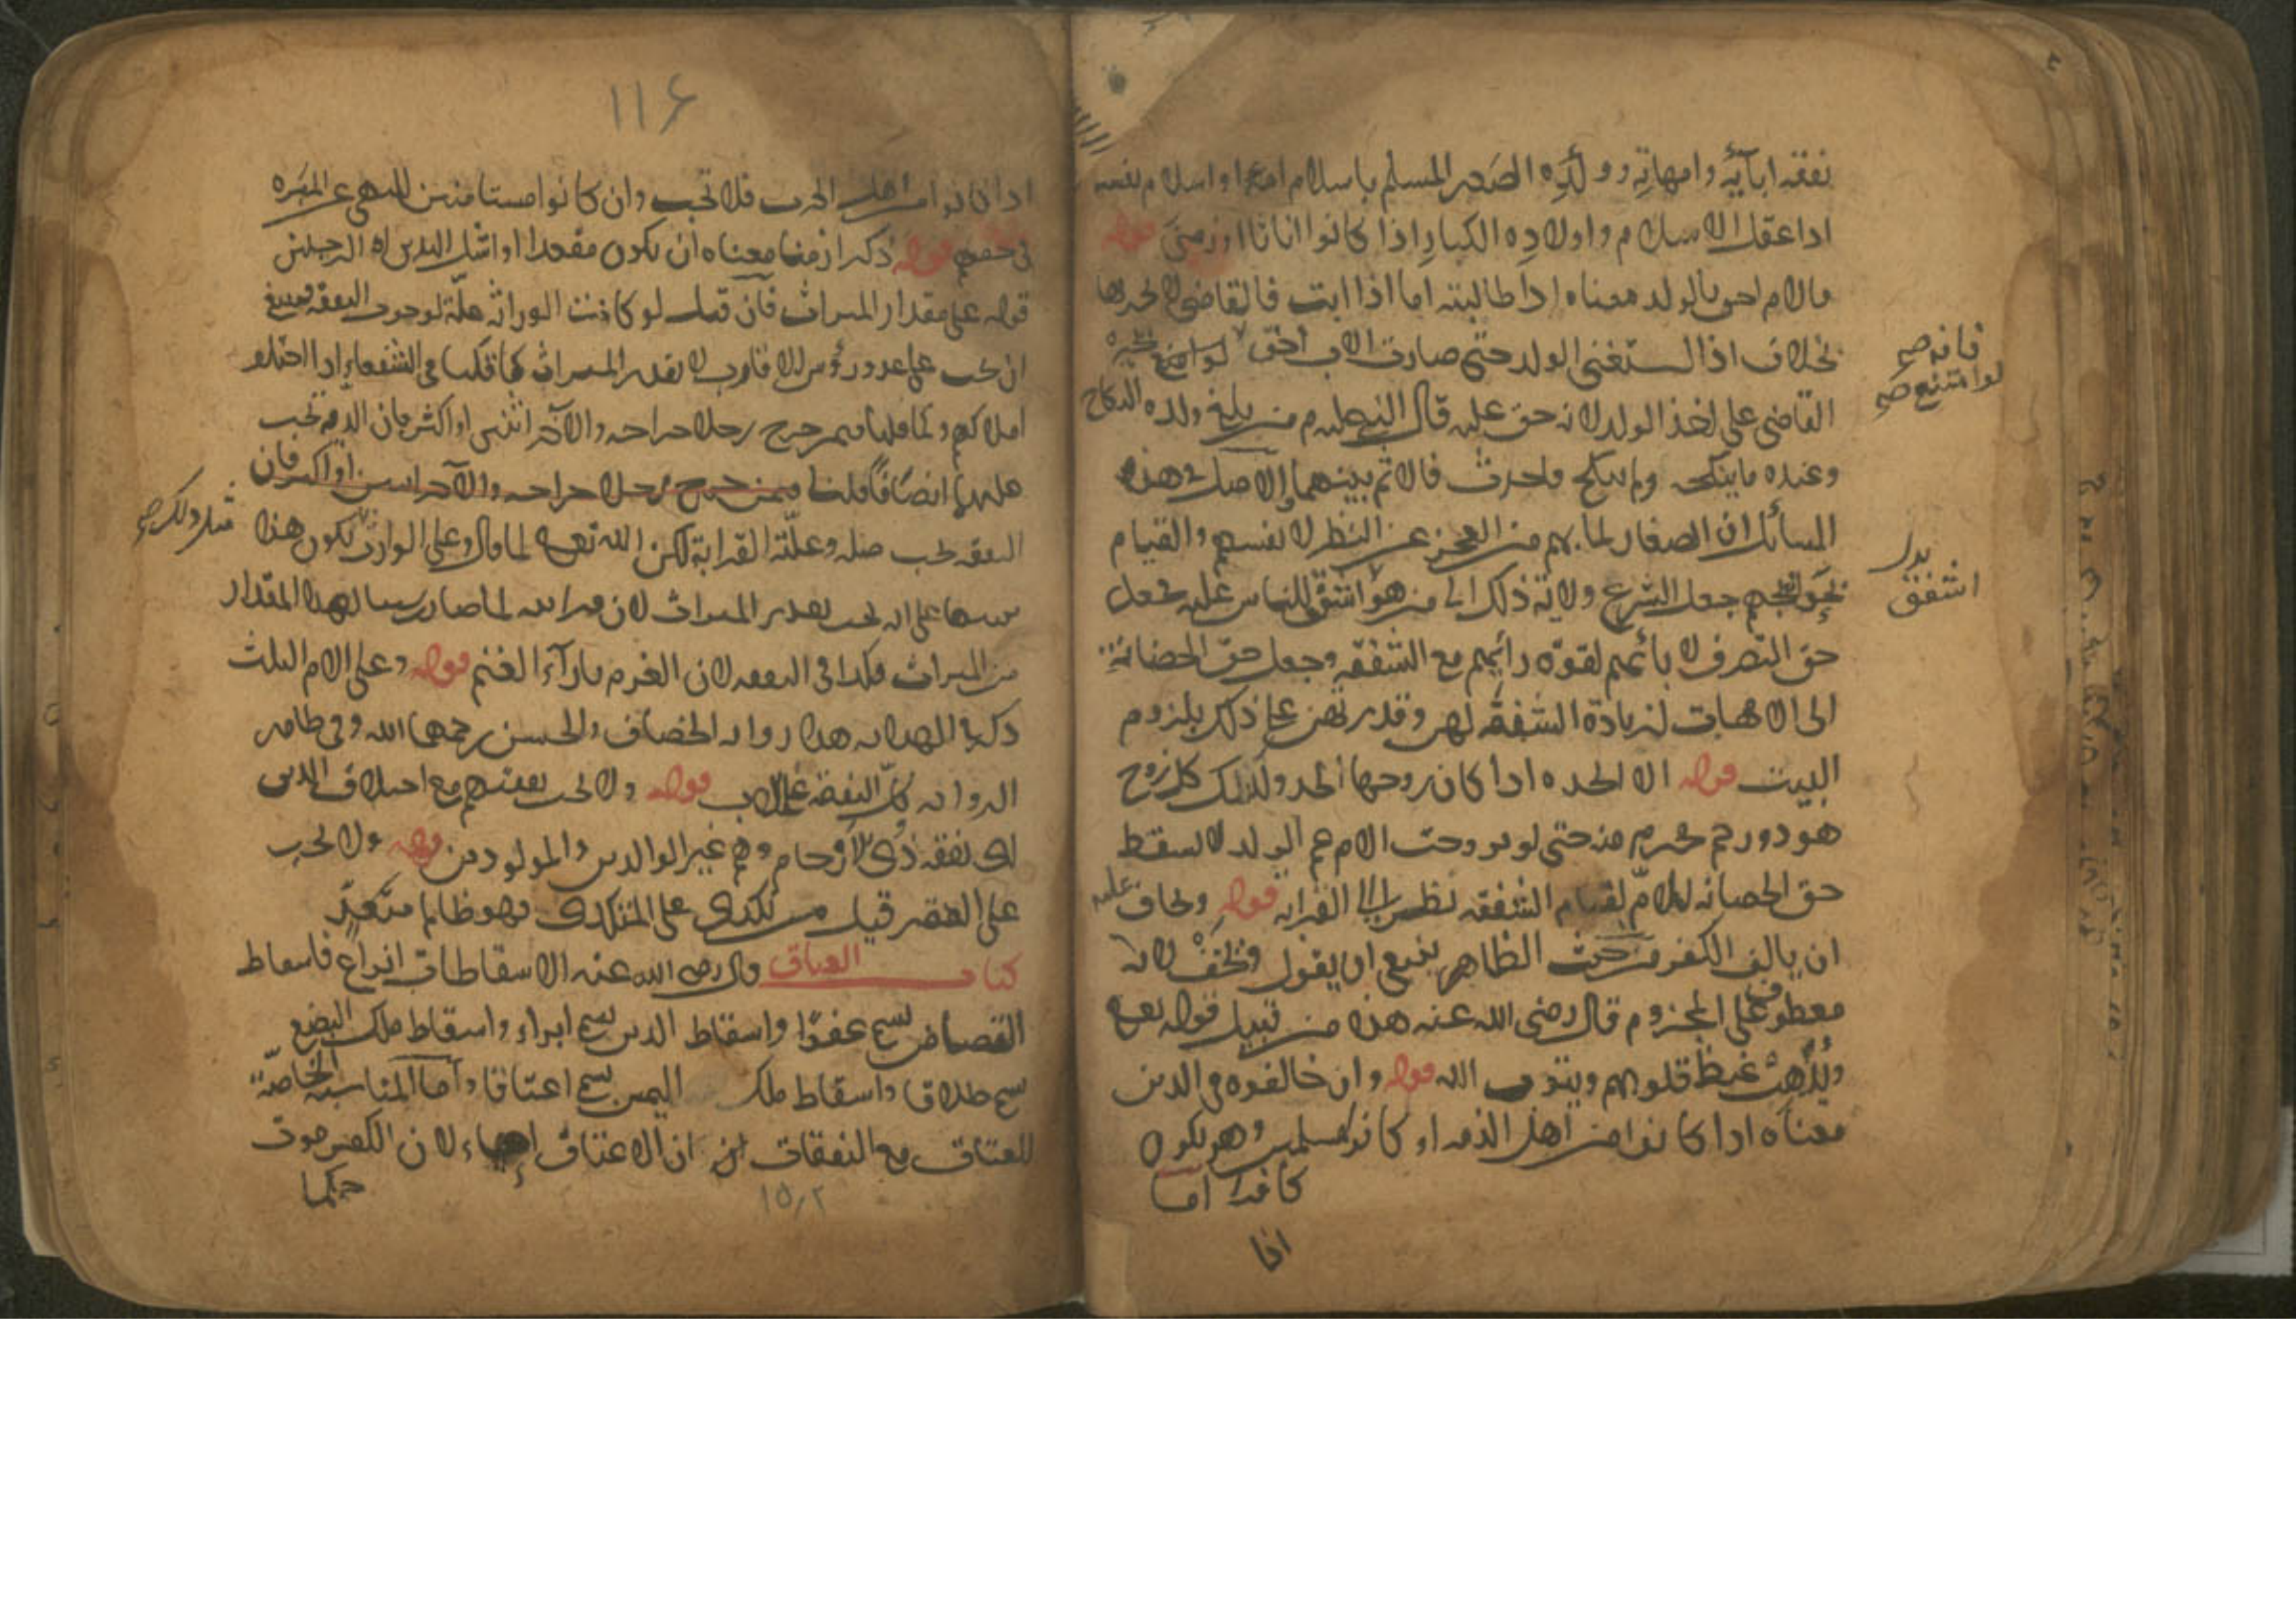 نفقه ابآئه وامهاته وولده الصغير المسلم باسلام امه او اسلام نفسه
اذا عقل الاسلام واولاده الكبار اذا كانوا اناثا او زمنى قوله
والام احق بالولد معناه اذا طالبته اما اذا ابت فالقاضي لا يجبرها
بخلاف اذا استغنى الولد حتى صارت الاب احق لو امتنع يجبره
القاضي على اخذ الولد لانه حق عليه قال النبي عليه م من بلغ ولده النكاح
وعنده ما ينكحه ولم ينكح فاحدث فالاثم بينهما والاصل في هذه
المسائل ان الصغار لما بهم من العجز عن النظر لانفسهم والقيام
بحوائجهم جعل الشرع ولاية ذلك الى من هو اشفق الناس عليه فجعل
حق التصرف لابائهم لقوة رائيهم مع الشفقه وجعل حق الحضانة
الى الامهات لزيادة الشفقة لهن وقدرتهن على ذلك بلزوم
البيت قوله الا الجده اذا كان زوجها الجد وكذلك كل زوج
هو ذو رحم محرم منه حتى لو تزوجت الام عم الولد لا يسقط
حق الحضانه للام لقيام الشفقه نظرا الى القرابه قوله ويخاف عليه
ان يالف الكفر من حيث الظاهر ينبغي ان يقول ويخف لانه
معطوف على المجزوم قال رضي الله عنه هذا من قبيل قوله تعالى
ويذهب غيظ قلوبهم ويتوب الله قوله وان خالفوه في الدين
معناه اذا كانوا من اهل الذمه او كانوا مسلمين وهو يكون
كافرا اما
اذا
فانه صح
لو امتنع صح
بدل
اشفق
١١۶
اذا كانوا من اهل الحرب فلا تجب وان كانوا مستامنين للنهي عن المبره
في حقهم قوله ذكر ازمنا معناه ان يكون مقعدا او اشل اليدين او الرجلين
قوله على مقدار الميراث فان قيل لو كانت الوراثه علة لوجوب النفقه ينبغي
ان يجب على عدد رؤس الاقارب لا بقدر الميراث كما قلنا في الشفعاء اذا اختلف
املاكهم وكما قلنا فيمن جرح رجلا جراحه والآخر اثنين او اكثر فان الديه تجب
عليهما انصافا قلنا فيمن جرح رجلا جراحه والآخر اثنين او اكثر فان
النفقه تجب صله وعلته القرابة لكن الله تعالى لما قال وعلى الوارث يكون هذا
تنبيها على انه يجب بقدر الميراث لان قرابته لما صار سببا لهذا المقدار
من الميراث فكذا في النفقه لان الغرم بازآء الغنم قوله وعلى الام الثلث
ذكر في الهدايه هذا روايه الخصاف والحسن رحمهما الله وفي ظاهر
الروايه كل النفقة على الاب قوله ولا تجب نفقتهم مع اختلاف الدين
اى نفقه ذوى الارحام وهم غير الوالدين والمولودين قوله ولا تجب
على الفقير قيل من تكدى على المتكدى فهو ظالم متعد
كتاب العتاق قال رضى الله عنه الاسقاطات انواع فاسقاط
القصاص يسمى عفوا واسقاط الدين يسمى ابراء واسقاط ملك البضع
يسمى طلاقا واسقاط ملك اليمين يسمى اعتاقا واما المناسبة الخاصة
للعتاق مع النفقات ان الاعتاق احياء لان الكفر موت
حكما
١٥٫٢